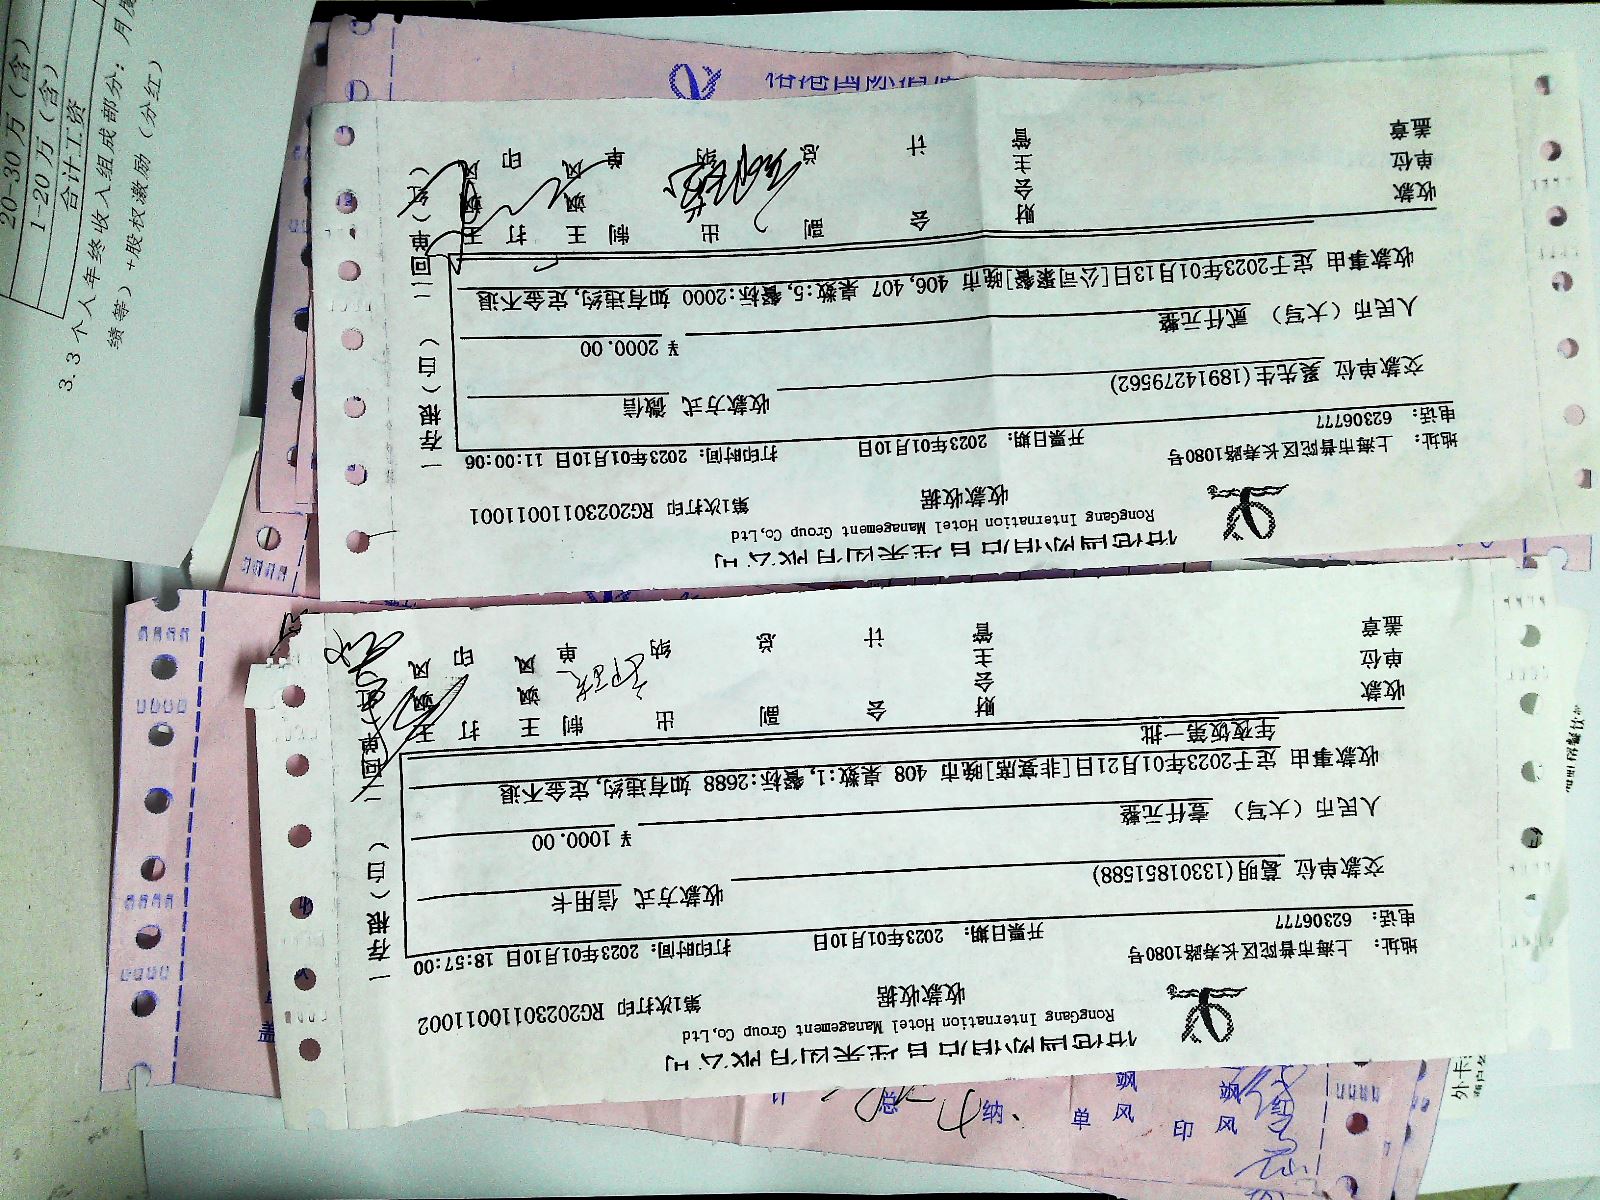 RongGang International Hotel Management Group Co,Ltd
收款收据
第1次打印 RG20230110011002
地址: 上海市普陀区长寿路1080号
电话: 62306777
开票日期: 2023年01月10日
打印时间: 2023年01月10日 18:57:00
交款单位 葛明(13301851588)
收款方式 信用卡
人民币（大写） 壹仟元整
¥ 1000.00
收款事由 定于2023年01月21日[非宴席]晚市 408 桌数:1,餐标:2688 如有违约,定金不退
年夜饭第一批
收款单位盖章
财会主管
会计
副总
出纳
制单
王飒风
打印
王飒风
一存根（白） 二回单（红）
RongGang International Hotel Management Group Co,Ltd
收款收据
第1次打印 RG20230110011001
地址: 上海市普陀区长寿路1080号
电话: 62306777
开票日期: 2023年01月10日
打印时间: 2023年01月10日 11:00:06
交款单位 聂先生(18914279562)
收款方式 微信
人民币（大写） 贰仟元整
¥ 2000.00
收款事由 定于2023年01月13日[公司聚餐]晚市 406,407 桌数:5,餐标:2000 如有违约,定金不退
收款单位盖章
财会主管
会计
副总
出纳
制单
王飒风
打印
王飒风
一存根（白） 二回单（红）
20-30万（含）
1-20万（含）
合计工资
3.3 个人年终收入组成部分：月度
绩等）+股权激励（分红）
总
纳
单
飒风
印
飒风
红
盖
外卡